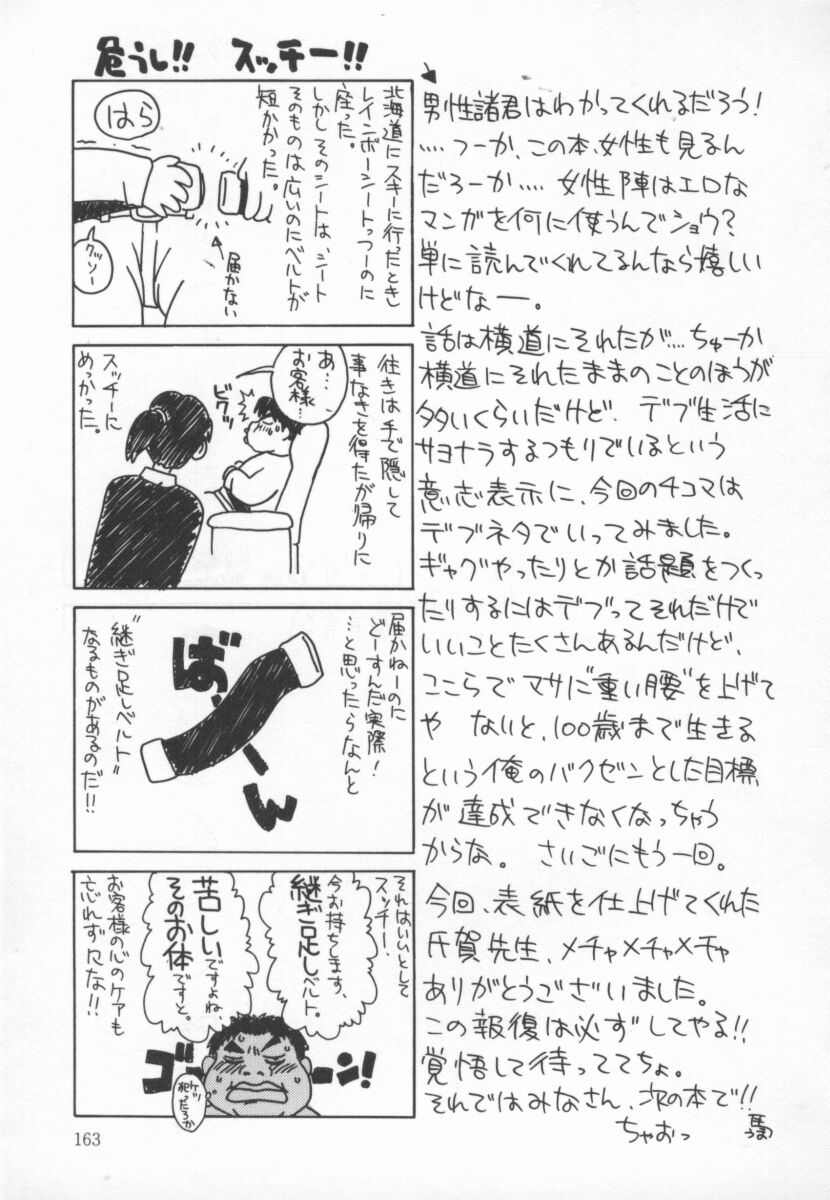 危うし!!　スッチー!!
北海道にスキーに行だたとき
レインボーシートっつーのに
座った。
しかしそのシートは、シート
そのものは広いのにベルトが
短かかった。
はら
届かない
クソー
往きは手で隠して
事なきを得たが帰りに
あ…
お客様…
ビクッ
スッチーに
めっかった。
届かねーのに
どーすんだ実際!
…と思ったらなんと
ばぁーん
"継ぎ足しベルト"
なるものがあるのだ!!
それはいいとして
スッチー、
今お持ちします、
継ぎ足しベルト。
苦しいですよね、
そのお体ですと。
お客様の心のケアも
忘れずにな!!
ゴーーン!
ケツ
犯ったろか
163
男性諸君はわかってくれるだろう!
‥‥つーか、この本、女性も見るん
だろーか‥‥女性陣はエロな
マンガを何に使うんでショウ?
単に読んでくれてるんなら嬉しい
けどなー。
話は横道にそれたが…ちゅーか
横道にそれたままのことのほうが
多いくらいだけど、デブ生活に
サヨナラするつもりでいるという
意志表示に、今回の4コマは
デブネタでいってみました。
ギャグやったりとか話題をつくっ
たりするにはデブってそれだけで
いいことたくさんあるんだけど、
ここらでマサに"重い腰"を上げて
や　ないと、100歳まで生きる
という俺のバクゼンとした目標
が達成できなくなっちゃう
からな。さいごにもう一回。
今回、表紙を仕上げてくれた
氏賀先生、メチャメチャメチャ
ありがとうございました。
この報復は必ずしてやる!!
覚悟して待っててちょ。
それではみなさん、次の本で!!
ちゃおっ